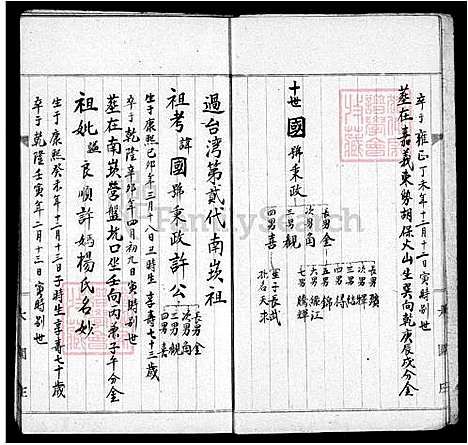 卒于雍正丁未年十二月十二日寅時別世
葬在嘉義東勢胡保火山坐巽向乾庚辰戌分金
十世 國 號秉政
長男 金
次男 角
三男 觀
四男 喜
長男 殯
三男 結
四男 得
五男 錦
六男 綠江
七男 輝
過台湾第貳代南崁祖
祖考 諱 國 號秉政 許公
長男 金
次男 角
三男 觀
四男 喜
生于康熙己卯年三月十八日丑時生 享壽七十三歲
卒于乾隆辛卯年四月初九日寅時別世
葬在南崁營盤坑口坐壬向丙兼子午分金
祖妣 謚 良順許媽楊氏名妙
生于康熙癸未年十二月十三日子時生享壽七十歲
卒于乾隆壬寅年二月十三日寅時別世
FamilySearch